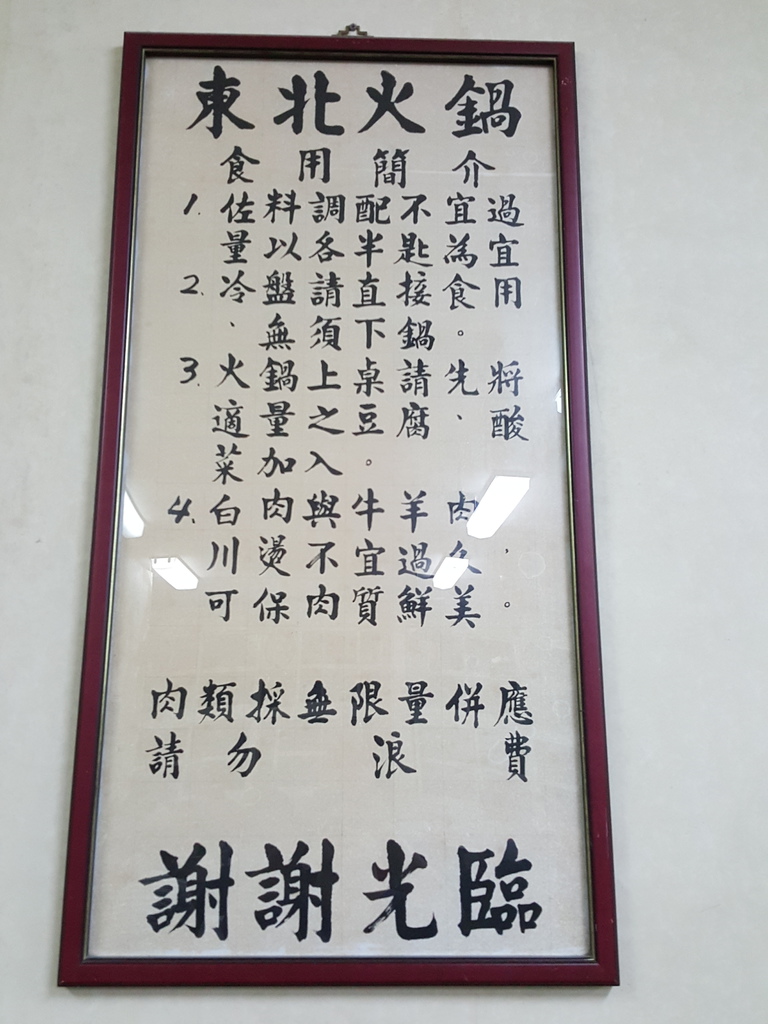 東北火鍋
食用簡介
1. 佐料調配不宜過
量以各半匙為宜
2. 冷盤請直接食用
、無須下鍋。
3. 火鍋上桌請先將
適量之豆腐、酸
菜加入。
4. 白肉與牛羊肉，
川燙不宜過久。
可保肉質鮮美
肉類採無限量併應
請勿浪費
謝謝光臨